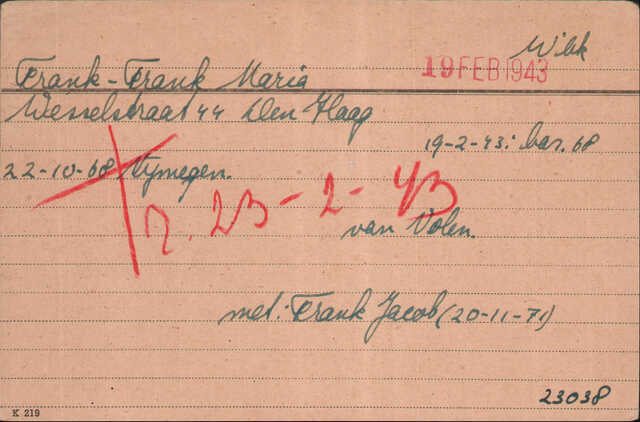 Wbk
19 FEB 1943
Frank-Frank Maria
Wesselstraat 44 Den Haag
19-2-43: bar. 68
22-10-68 Nymegen.
23-2-43
van Volen.
met: Frank Jacob (20-11-71)
23038
K 219